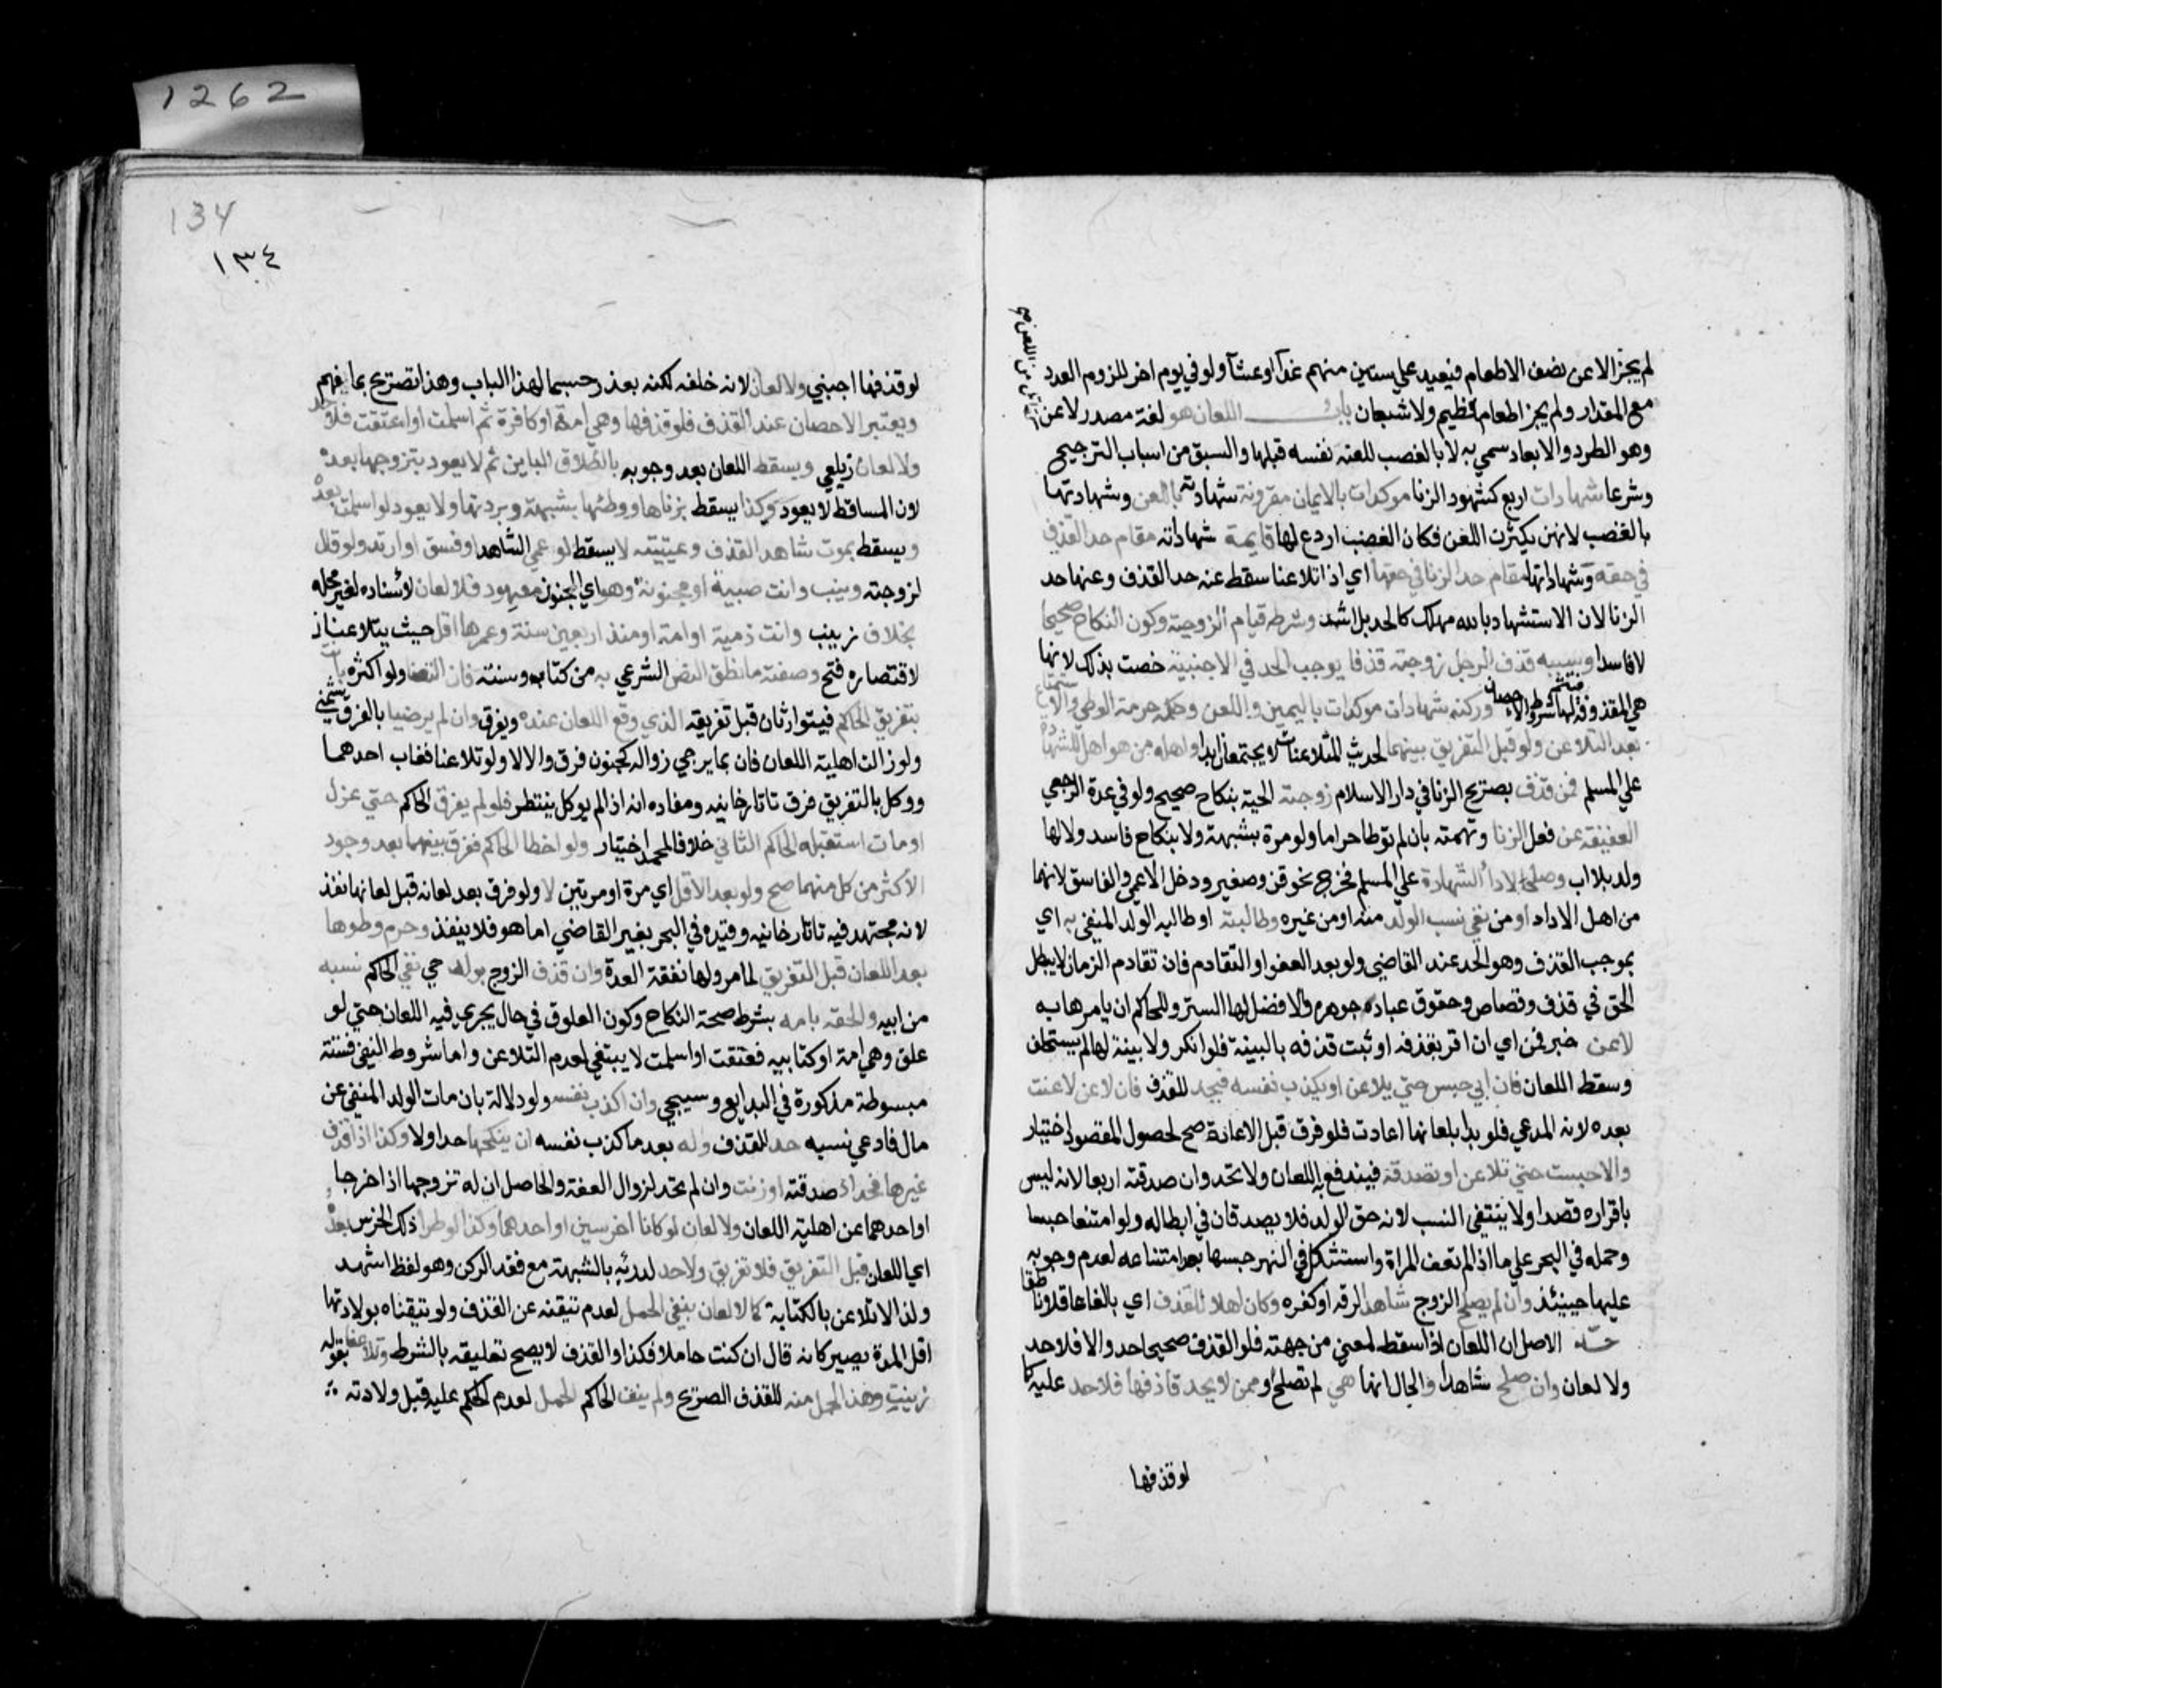 لم يجز الا عن نصف الاطعام فيعيد علي ستين منهم غدآ او عشآ ولو في يوم اخر للزوم العدد
مع المقدار ولم يجز اطعام فطيم ولا شبعان باب اللعان هو لغة مصدر لاعن
وهو الطرد والابعاد سمي به لا بالغصب للعنه نفسه قبلها والسبق من اسباب الترجيح
وشرعا شهادات اربع كشهود الزنا موكدات بالايمان مقرونة شهادته باللعن وشهادتها
بالغضب لانهن يكثرت اللعن فكان الغضب اردع لها قايمة شهاداته مقام حد القذف
في حقه وشهاداتها مقام حد الزنا في حقها اي اذا تلاعنا سقط عنه حد القذف وعنها حد
الزنا لان الاستشهاد بالله مهلك كالحد بل اشد وشرطه قيام الزوجية وكون النكاح صحيحا
لا فاسدا وسببه قذف الرجل زوجته قذفا يوجب الحد في الاجنبية خصت بذلك لانها
هي المقذوفة فيتم لها شروط الاحصان وركنه شهادات موكدات باليمين واللعن وحكمه حرمة الوطي والاستمتاع
بعد التلاعن ولو قبل التفريق بينهما لحديث المتلاعنان لا يجتمعان ابدا واهله من هو اهل للشهادة
علي المسلم فمن قذف بصريح الزنا في دار الاسلام زوجته الحية بنكاح صحيح ولو في عدة الرجعي
العفيفة عن فعل الزنا وتهمته بان لم توطا حراما ولو مرة بشبهة ولا بنكاح فاسد ولا لها
ولد بلا اب وصلحا لادا الشهادة علي المسلم فخرج نحو قن وصغير ودخل الاعمي والفاسق لانهما
من اهل الاداء او من نفي نسب الولد منه او من غيره وطالبته او طالبه الولد المنفي به اي
بموجب القذف وهو الحد عند القاضي ولو بعد العفو او التقادم فان تقادم الزمان لا يبطل
الحق في قذف وقصاص وحقوق عباد جوهره والافضل لها الستر وللحاكم ان يامرها به
لاعن خبر فمن اي ان اقر بقذفه او ثبت قذفه بالبينة فلو انكر ولا بينة لها لم يستحلف
وسقط اللعان فان ابي حبس حتي يلاعن او يكذب نفسه فيحد للقذف فان لاعن لاعنت
بعده لانه المدعي فلو بدا بلعانها اعادت فلو فرق قبل الاعادة صح لحصول المقصود اختيار
والا حبست حتي تلاعن او تصدقه فيندفع به اللعان ولا تحد وان صدقته اربعا لانه ليس
باقراره قصدا ولا ينتفي النسب لانه حق الولد فلا يصدقان في ابطاله ولو امتنعا حبسا
وحمله في البحر علي ما اذا لم تعف المراة واستشكل في النهر حبسها بعد امتناعه لعدم وجوبه
عليها حينيئذ وان لم يصلح الزوج شاهدا لرقه او كفره وكان اهلا للقذف اي بالغا عاقلا ناطقا
حد الاصل ان اللعان اذا سقط لمعني من جهته فلو القذف صحيحا حد والا فلا حد
ولا لعان وان صلح شاهدا والحال انها هي لم تصلح او ممن لا يحد قاذفها فلا حد عليه كما
لو قذفها
١٣٤
134
1262
لو قذفها اجنبي ولا لعان لانه خلفه لكنه يعذر حسما لهذا الباب وهذا تصريح بما يفهم
ويعتبر الاحصان عند القذف فلو قذفها وهي امة او كافرة ثم اسلمت او اعتقت فلا حد
ولا لعان زيلعي ويسقط اللعان بعد وجوبه بالطلاق الباين ثم لا يعود بتزوجها بعده
لان الساقط لا يعود وكذا يسقط بزناها ووطئها بشبهة وبردتها ولا يعود لو اسلمت بعده
ويسقط بموت شاهد القذف وغيبته لا يسقط لو عمي الشاهد او فسق او ارتد ولو قال
لزوجته زنيت وانت صبية او مجنونة وهو اي الجنون معهود فلا لعان لاسناده لغير محله
بخلاف زنيت وانت ذمية او امة او منذ اربعين سنة وعمرها اقل حيث يتلاعنان
لاقتصاره فتح وصفته ما نطق النص الشرعي به من كتاب وسنة فان التعنا ولو اكثره بانت
بتفريق الحاكم فيتوارثان قبل تفريقه الذي وقع اللعان عنده ويفرق وان لم يرضيا بالفرقة شمني
ولو زالت اهلية اللعان فان بما يرجي زواله كجنون فرق والا لا ولو تلاعنا فغاب احدهما
ووكل بالتفريق فرق تاتارخانيه ومفاده انه اذا لم يوكل ينتظر فلو لم يفرق الحاكم حتي عزل
او مات استقبله الحاكم الثاني خلافا لمحمد اختيار ولو اخطا الحاكم ففرق بينهما بعد وجود
الاكثر من كل منهما صح ولو بعد الاقل اي مرة او مرتين لا ولو فرق بعد لعانه قبل لعانها نفذ
لانه مجتهد فيه تاتارخانيه وقيده في البحر بغير القاضي اما هو فلا ينفذ وحرم وطوها
بعد اللعان قبل التفريق لما مر ولها نفقة العدة وان قذف الزوج بولد حي نفي الحاكم نسبه
من ابيه والحقه بامه بشرط صحة النكاح وكون العلوق في حال يجري فيه اللعان حتي لو
علق وهي امة او كتابيه فعتقت او اسلمت لا ينتفي لعدم التلاعن واما شروط النفي فستة
مبسوطة مذكورة في البدايع وسيجي وان اكذب نفسه ولو دلالة بان مات الولد المنفي عن
مال فادعي نسبه حد للقذف وله بعد ما كذب نفسه ان ينكحها حد اولا وكذا اذا قذف
غيرها فحد او صدقته او زنت وان لم تحد لزوال العفة والحاصل ان له تزوجها اذا خرجا
او احدهما عن اهلية اللعان ولا لعان لو كانا اخرسين او احدهما وكذا لو طرا ذلك الخرس بعده
اي اللعان قبل التفريق فلا تفريق ولا حد لدرئه بالشبهة مع فقد الركن وهو لفظ اشهد
ولذا لا تلاعن بالكتابة كما لا لعان بنفي الحمل لعدم تيقنه عن القذف ولو تيقناه بولادتها
اقل المدة يصير كانه قال ان كنت حاملا فكذا والقذف لا يصح تعليقه بالشرط وتلاعنا بقوله
زنيت وهذا الحمل منه للقذف الصريح ولم ينف الحاكم الحمل لعدم الحكم عليه قبل ولادته